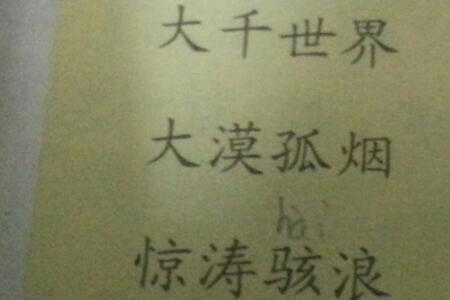 大千世界
大漠孤烟
hài
惊涛骇浪